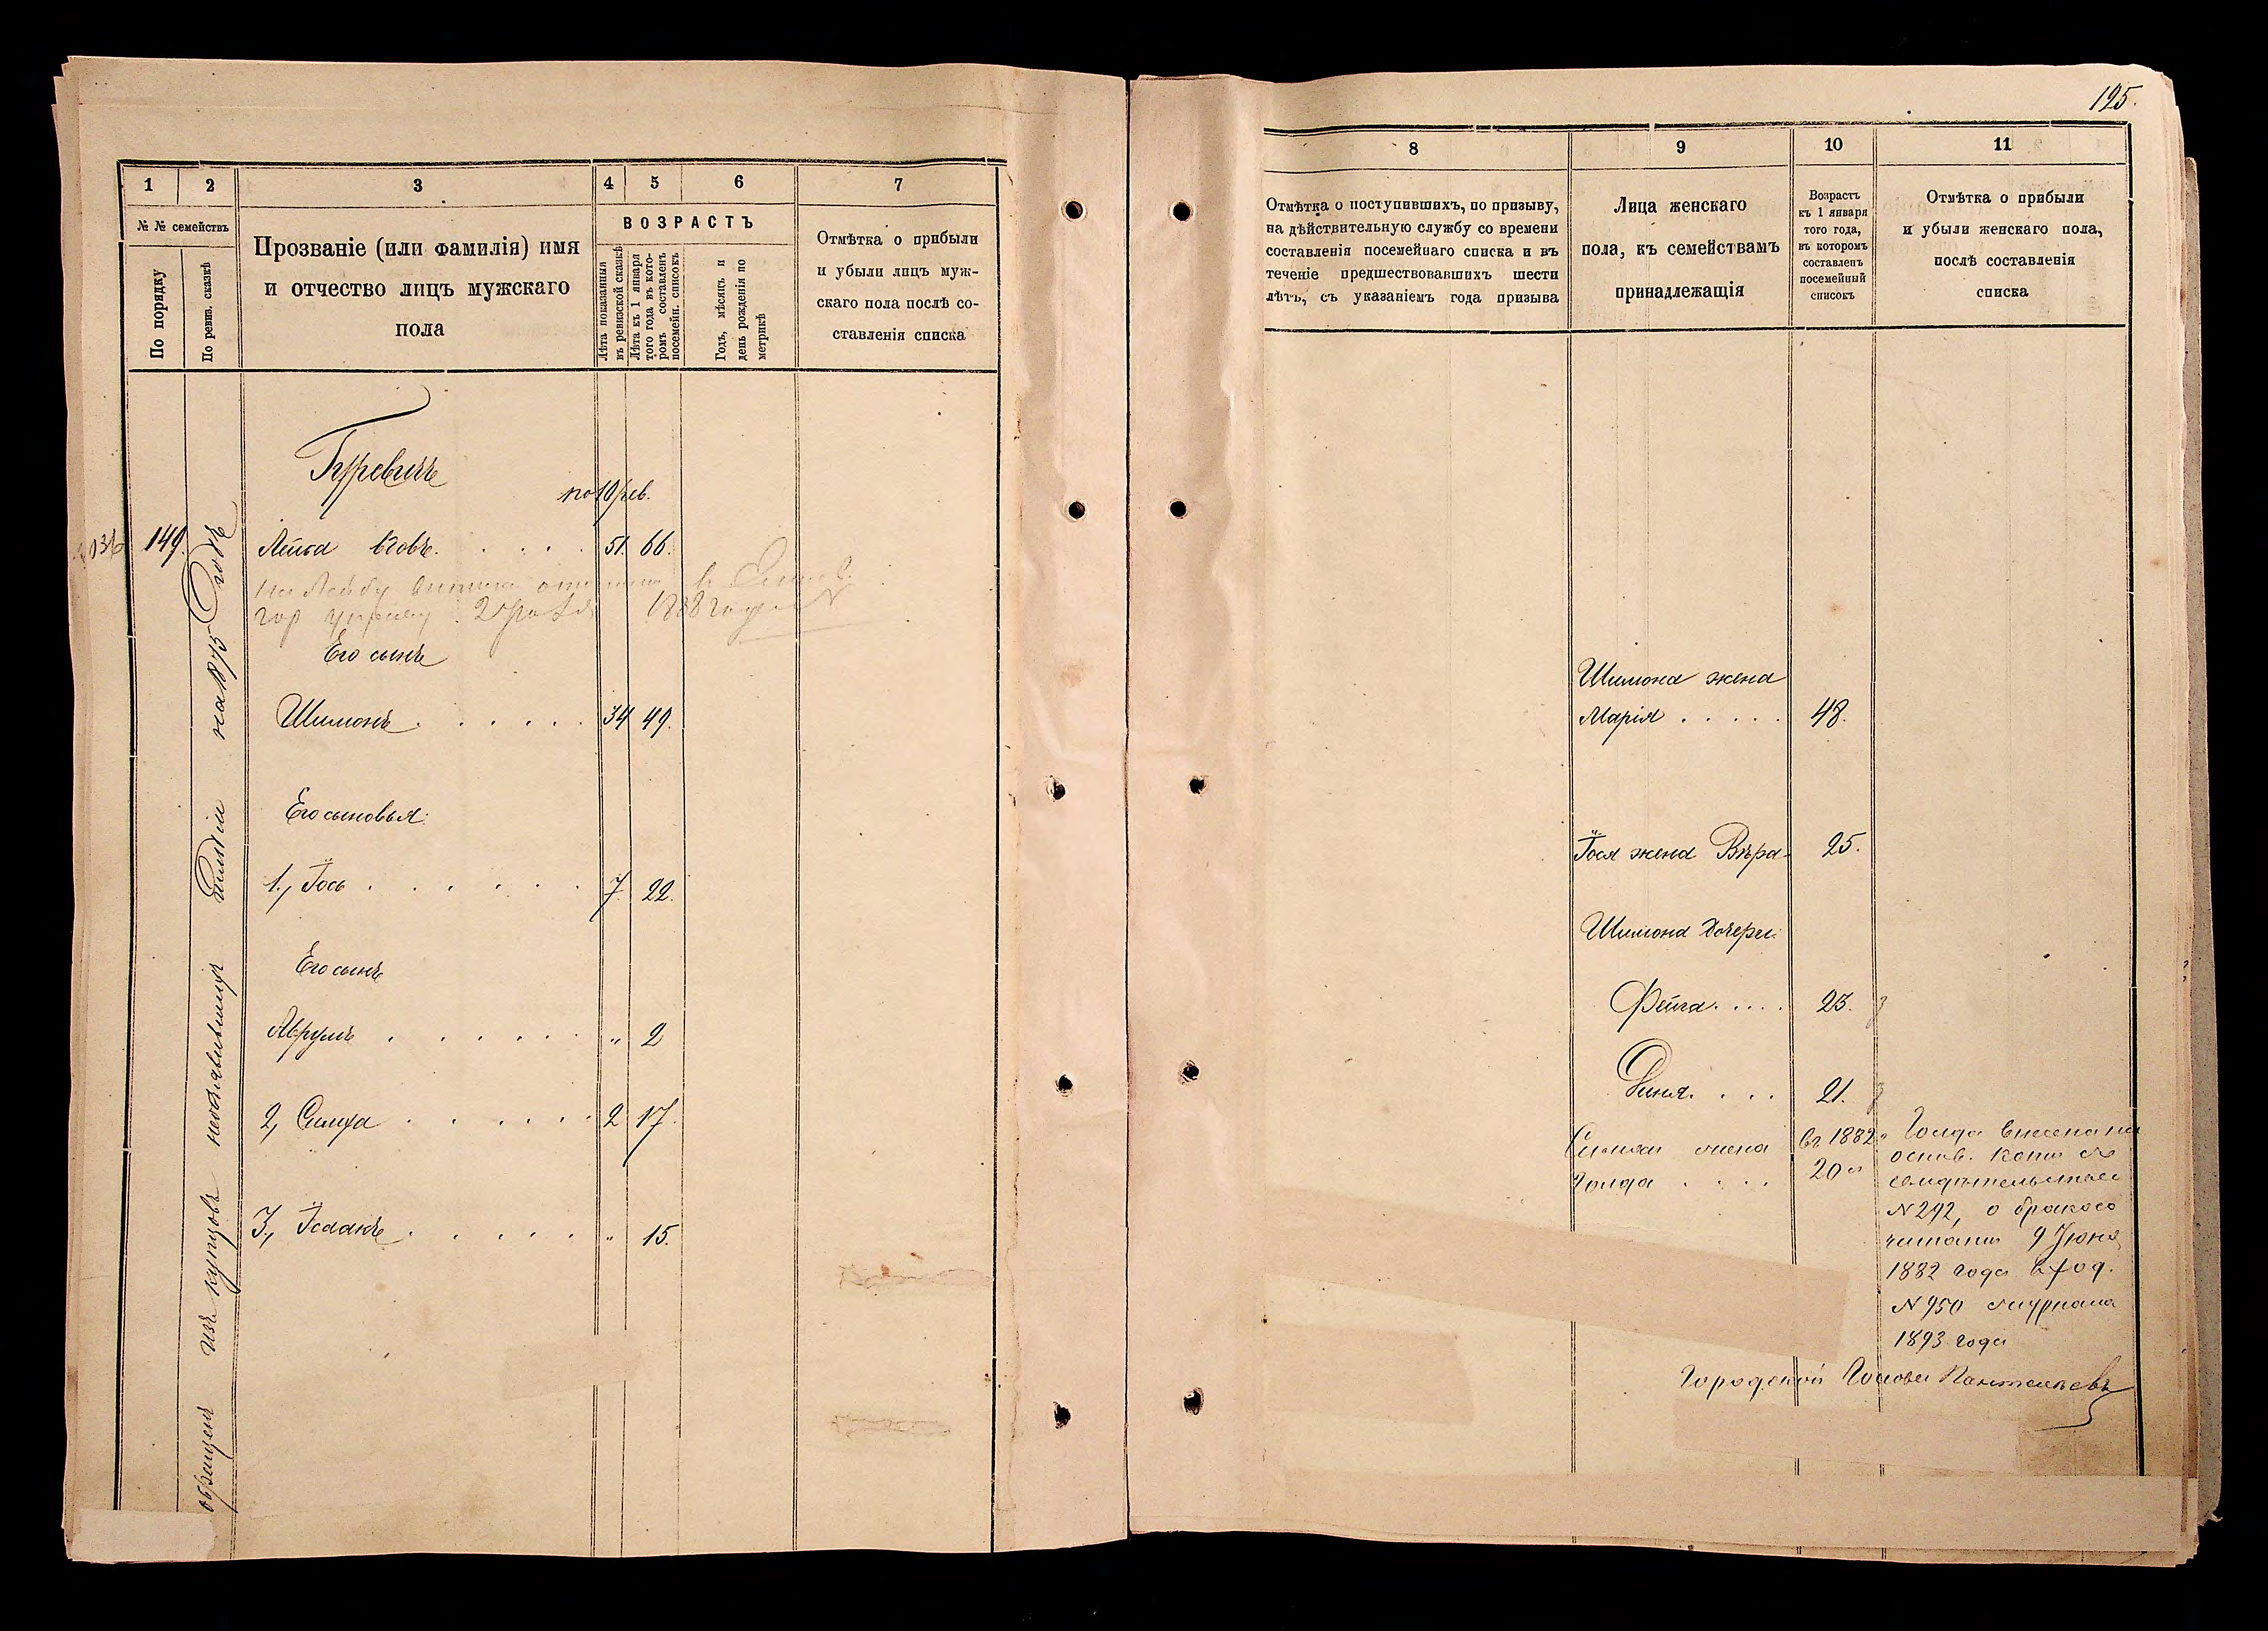 1
2
3
4
5
6
7
№ № семействъ
По порядку
По ревиз. сказкѣ
Прозваніе (или фамилія) имя
и отчество лицъ мужскаго
пола
ВОЗРАСТЪ
Лѣта показанныя
въ ревизской сказкѣ
Лѣта къ 1 января
того года въ кото-
ромъ составленъ
посемейн. списокъ
Годъ, мѣсяцъ и
день рожденія по
метрикѣ
Отмѣтка о прибыли
и убыли лицъ муж-
скаго пола послѣ со-
ставленія списка
Гуревичъ
по 10 рев.
149. Лейба 51. 66.
1888 года
Его сынъ
Шимонъ . . . . . 34 49.
Его сыновья:
1., Іось . . . . . . 7. 22.
Его сынъ
Аврумъ . . . . . " 2
2, Симха . . . . . 2 17.
3., Ісаакъ . . . . . " 15.
обращенъ изъ купцовъ необъявившихъ гильдіи на 1875 годъ
125.
8
9
10
11
Отмѣтка о поступившихъ, по призыву,
на дѣйствительную службу со времени
составленія посемейнаго списка и въ
теченіе предшествовавшихъ шести
лѣтъ, съ указаніемъ года призыва
Лица женскаго
пола, къ семействамъ
принадлежащія
Возрастъ
къ 1 января
того года,
въ которомъ
составленъ
посемейный
списокъ
Отмѣтка о прибыли
и убыли женскаго пола,
послѣ составленія
списка
Шимона жена
Марія . . . . . 48.
Іося жена Вѣра 25.
Шимона дочери:
Фейга . . . . 23.
Диня. . . . 21.
Симхи жена въ 1882
Голда . . . . 20 л
Голда внесена на
основ. копіи съ
свидѣтельства
№ 292, о бракосо
четаніи 9 Іюня
1882 года вход.
№ 950 журнала
1893 года
Городской Голова Пантелѣевъ